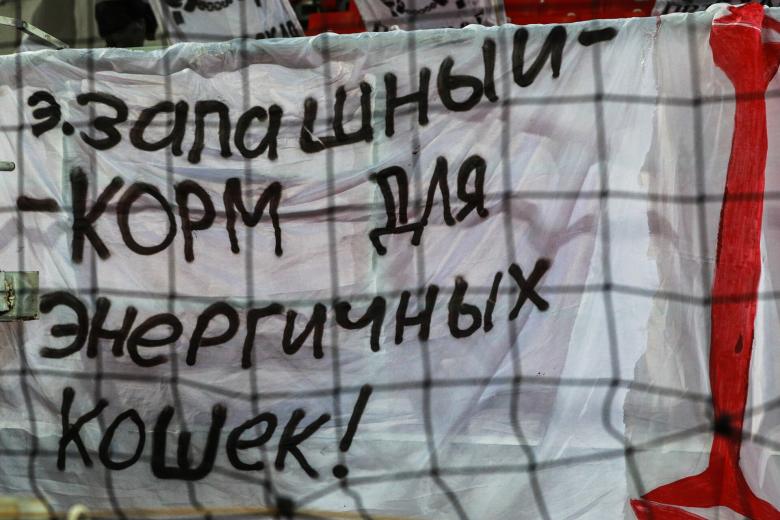 э.запашный-
-корм для
энергичных
кошек!